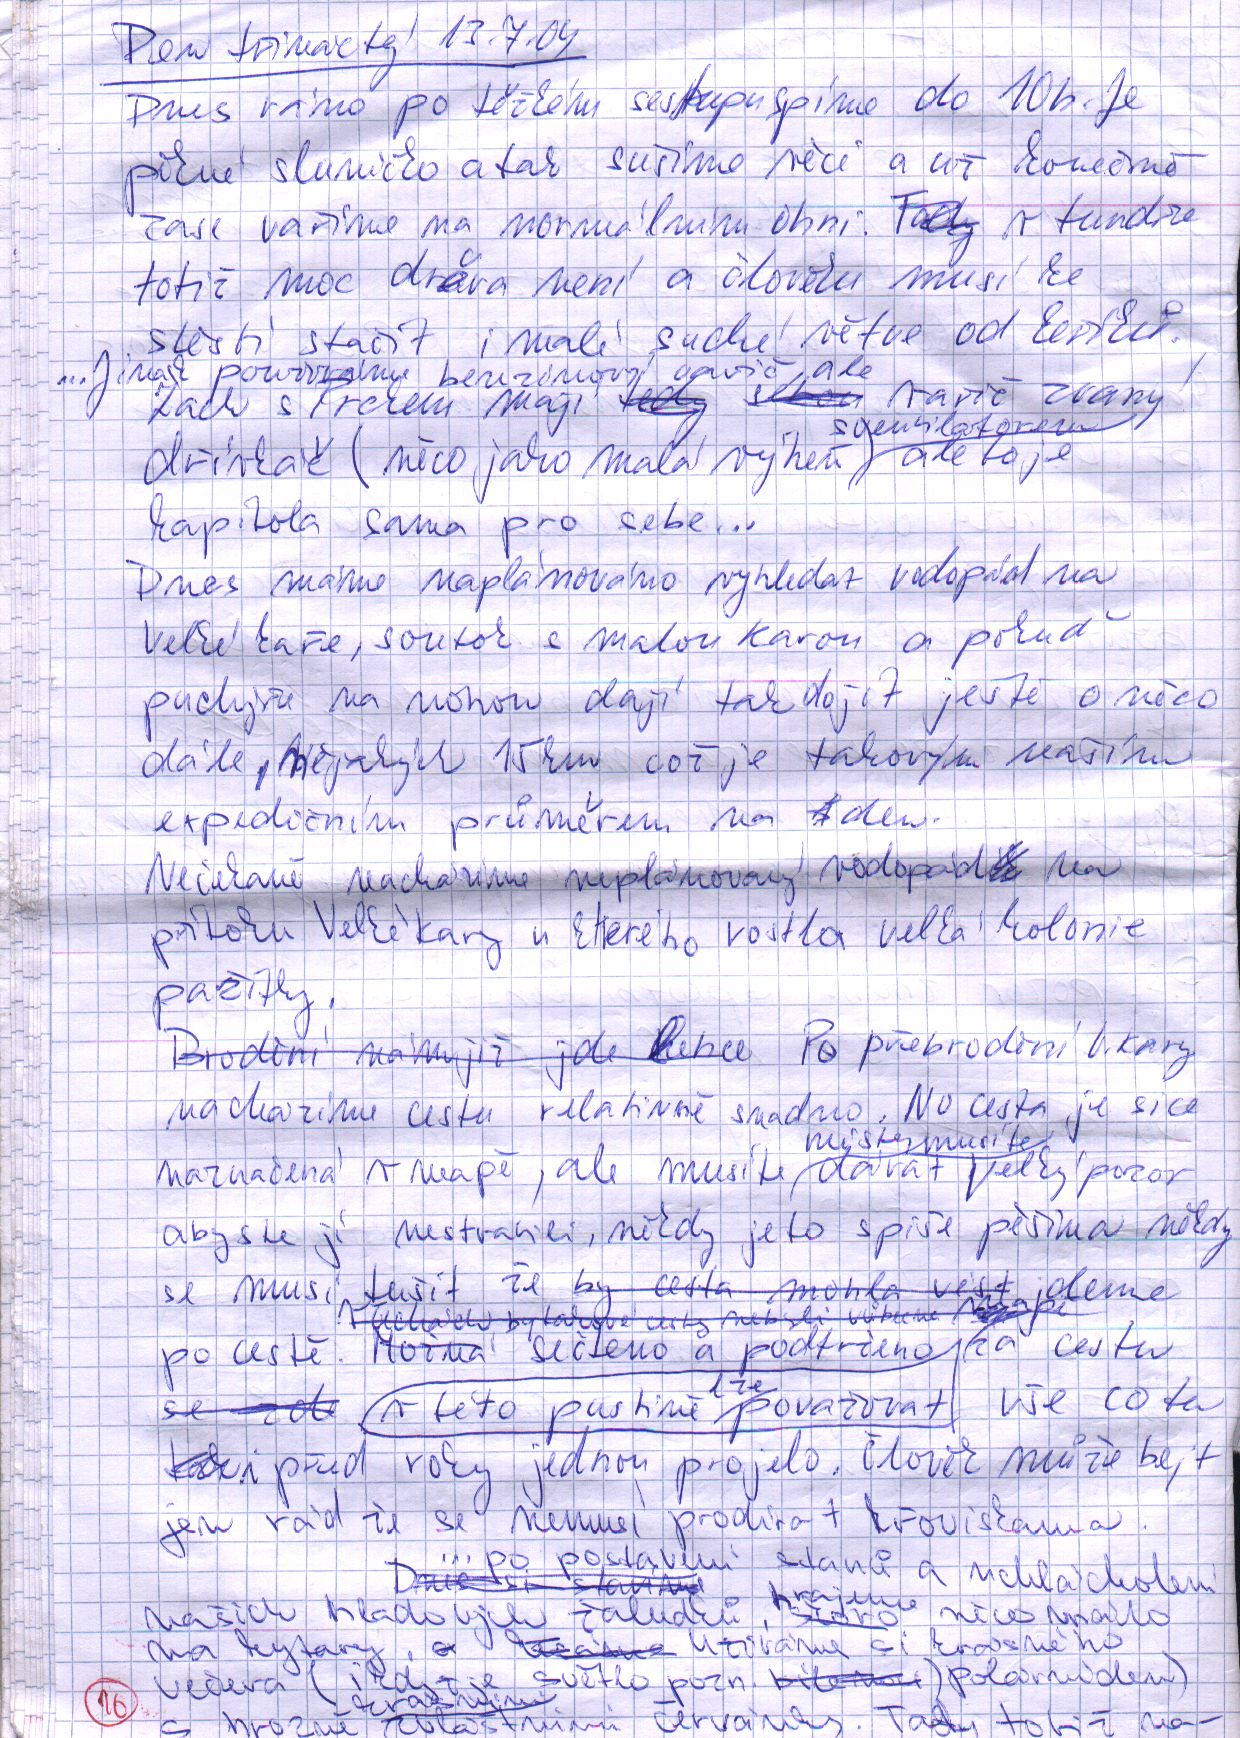 Den třináctý 13.7.04
Dnes ráno po těžkém sestupu spíme do 10h. Je
pěkné sluníčko a tak sušíme věci a už konečně
zase vaříme na normálním ohni. Tady v tundře
totiž moc dřeva není a člověku musí ke
štěstí stačit i malé suché větve od keříků.
...Jinak používáme benzínový vařič, ale
Zach s Frčem mají tedy sebou vařič zvaný
s ventilátorem
dřívkáč (něco jako malá výheň) ale to je
kapitola sama pro sebe...
Dnes máme naplánováno vyhledat vodopád na
Velké Kaře, soutok s malou Karou a pokud
puchýře na nohou dají tak dojít ještě o něco
dále, nějakých 15km což je takovým naším
expedičním průměrem na den.
Nečekaně nacházíme neplánovaný vodopád na
přítoku Velké Kary u kterého rostla velká kolonie
pažitky.
Brodění nám již jde lehce Po přebrodění V. Kary
nacházíme cestu relativně snadno. No cesta je sice
místy musíte
naznačená v mapě, ale musíte dávat velký pozor
abyste jí neztratili, někdy je to spíše pěšina někdy
se musí tušit že by cesta mohla vést jdeme
po cestě. Možná Sečteno a podtrženo za cestu
se zde v této pustině lze považovat vše co tu
i před roky jednou projelo. Člověk může bejt
jen rád že se nemusí prodírat křoviskama.
...po postavení stanů a uchlácholení
našich hladových žaludků, hrajeme něco málo
na kytary, a užíváme si krásného
večera (i když je světlo pozn. polární den)
krásnými
s hrozně zvláštními červánky. Tady totiž na-
16